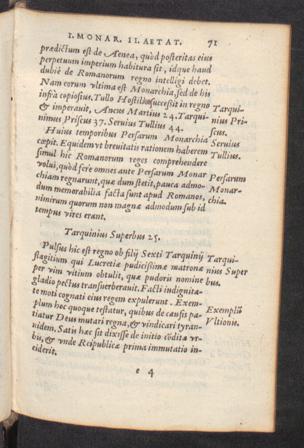 I. MONAR. II. AETAT. 71
prædictum est de Aenea, quòd posteritas eius
perpetuum imperium habitura sit, idque haud
dubiè de Romanorum regno intelligi debet.
Nam eorum ultima est Monarchia, sed de his
infrà copiosius. Tullo Hostilio successit in regno
& imperauit, Ancus Martius 24. Tarqui-
nius Priscus 37. Seruius Tullius 44.
Tarqui-
nius Pri-
scus.
Seruius
Tullius.
Huius temporibus Persarum Monarchia
cœpit. Equidem ut breuitatis rationem haberem
simul hic Romanorum reges comprehendere
volui, quòd ferè omnes ante Persarum Monar
chiam regnarunt, quæ dum stetit, pauca admo-
dum memorabilia facta sunt apud Romanos,
nimirum quorum non magnæ admodum sub id
tempus vires erant.
Persarum
Monar-
chia.
Tarquinius Superbus 25.
Pulsus hic est regno ob filij Sexti Tarquinij
flagitium qui Lucretiæ pudicissimæ matronæ
per vim vitium obtulit, quæ pudoris nomine
gladio pectus transuerberauit. Facti indignita-
te moti cognati eius regem expulerunt. Exem-
plum hoc quoque testatur, quibus de causis pa-
tiatur Deus mutari regna, & vindicari tyran-
nidem. Satis hæc sit dixisse de initio cõditæ vr-
bis, & vnde Reipublicæ prima immutatio in-
ciderit.
Tarqui-
nius Super
bus.
Exemplũ
Vltionis.
e 4